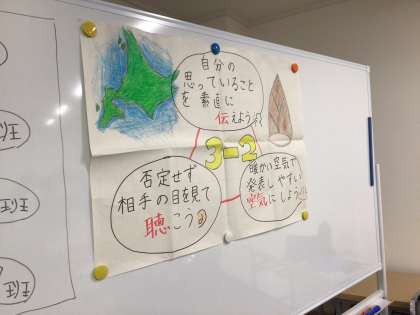 自分の
思っていること
を素直に
伝えよう
3-2
否定せず
相手の目を見て
聴こう
暖かい空気で
発表しやすい
空気にしよう
班
班
班
班